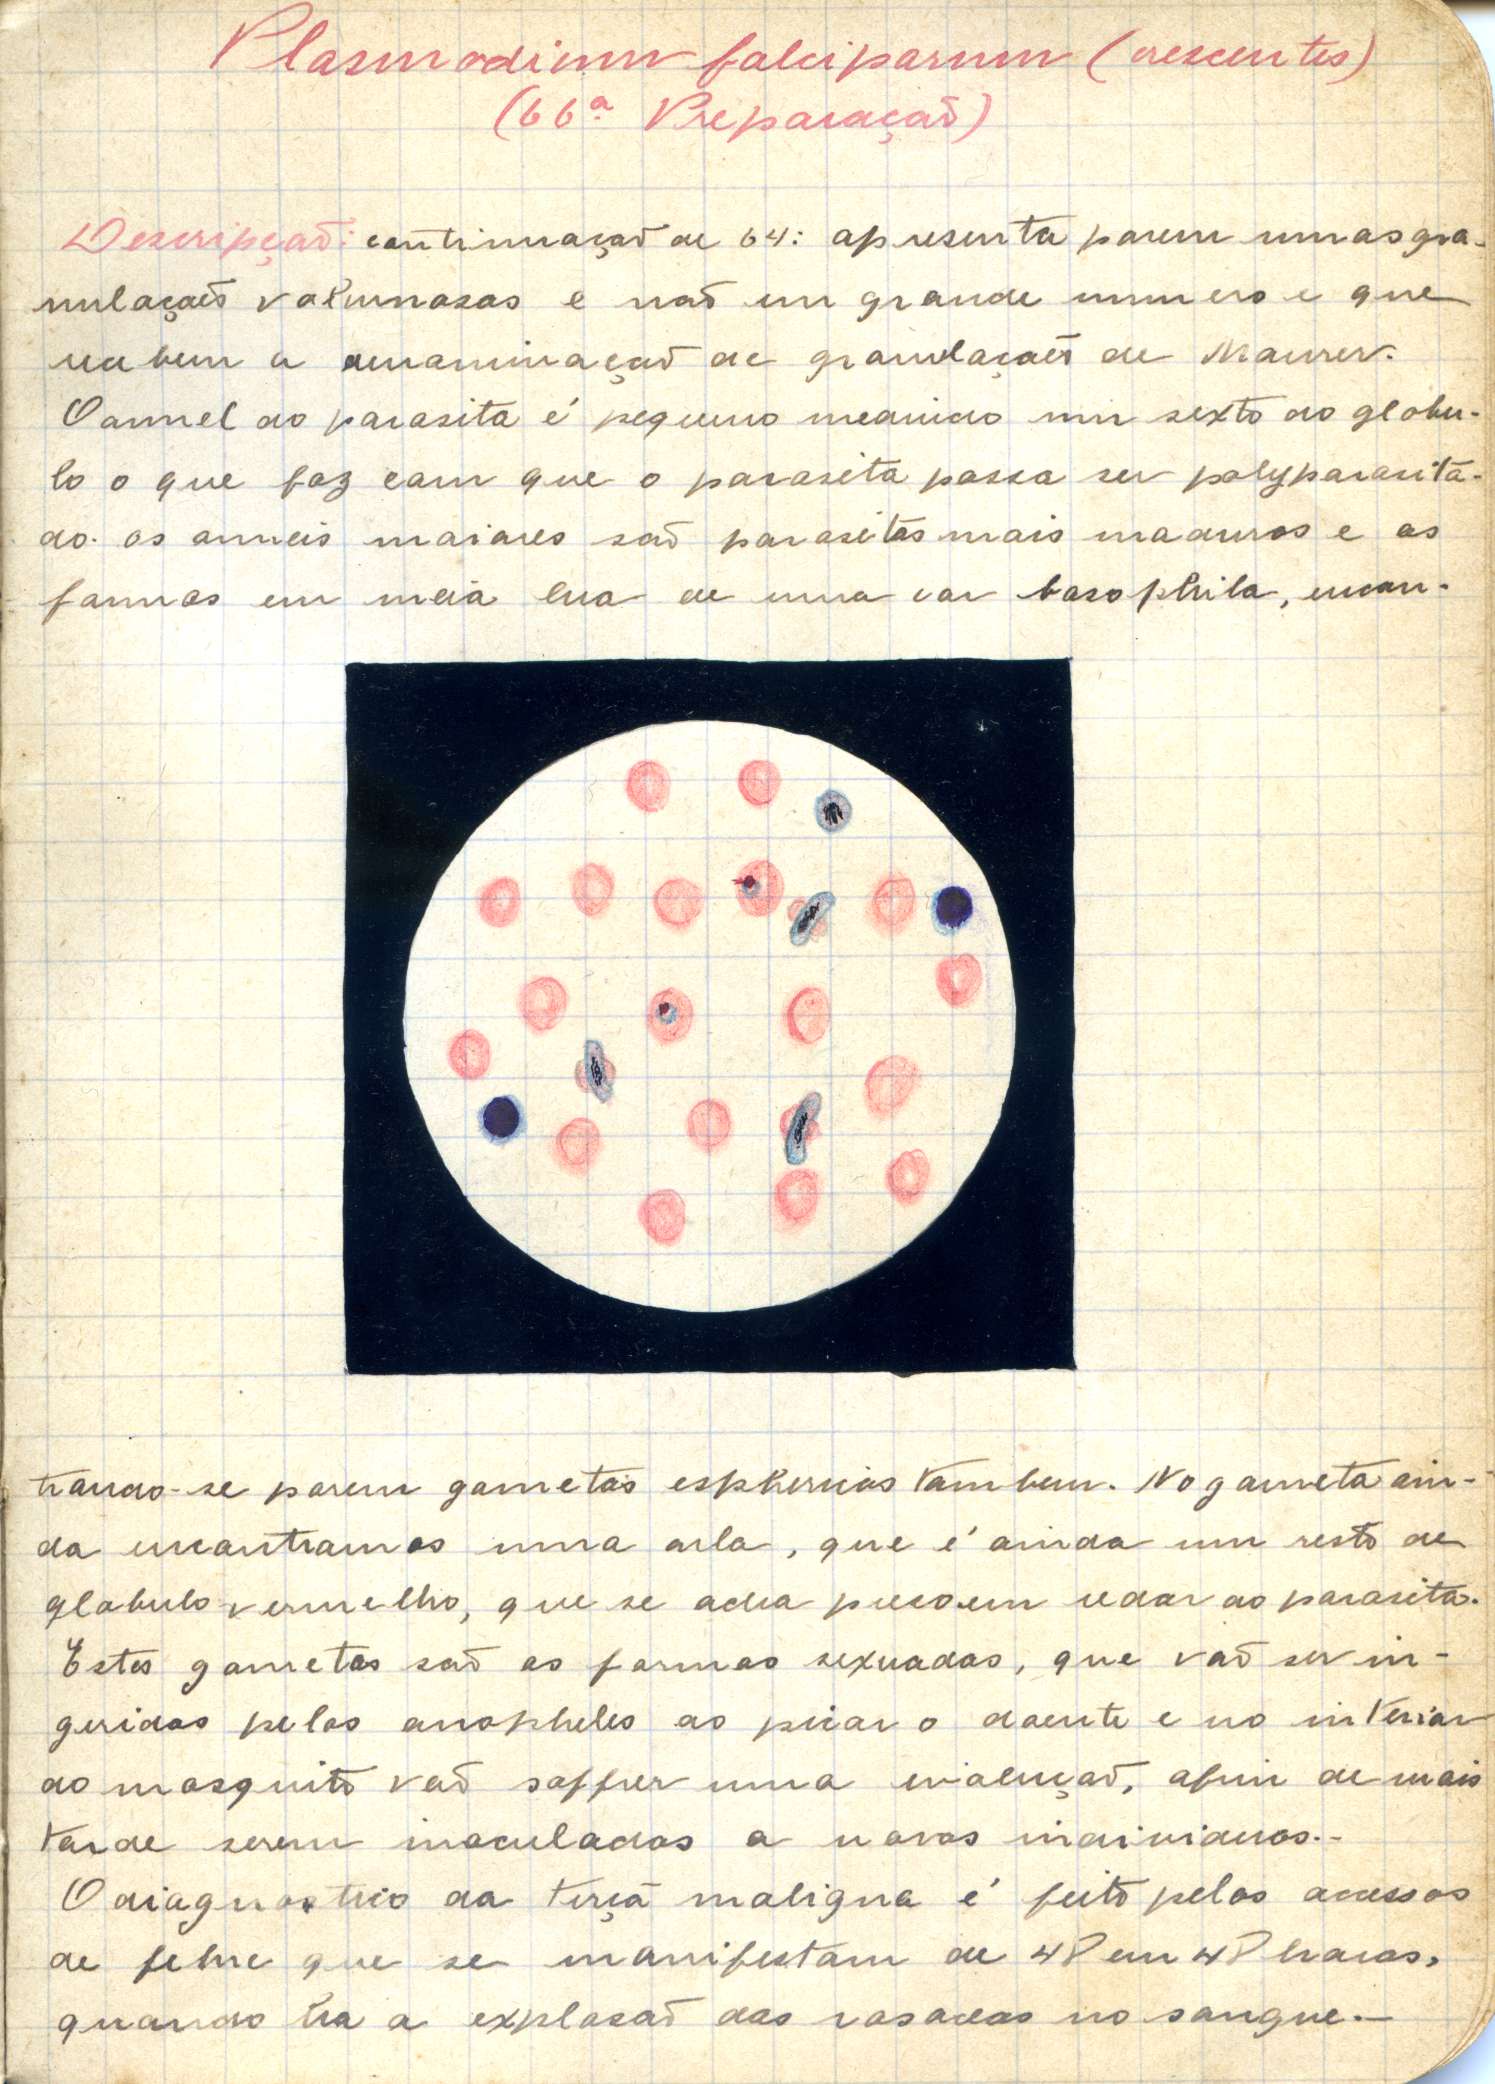 Plasmodium falciparum (crescentes)
(66ª Preparação)
Descripção: continuação de 64: apresenta porem umas gra-
nulações volumosas e não em grande numero e que
recebem a denominação de granulações de Maurer.
O annel do parasita é pequeno medindo um sexto do globu-
lo o que faz com que o parasita possa ser polyparasita-
do. os anneis maiores são parasitas mais maduros e as
formas em meia lua de uma cor basophila, encon-
trando-se porem gametas esphericas tambem. No gameta ain-
da encontramos uma orla, que é ainda um resto de
globulo vermelho, que se acha preso em redor ao parasita.
Estes gametas são as formas sexuadas, que vão ser in-
geridas pelos anopheles ao picar o doente e no interior
do mosquito vão soffrer uma evolução, afim de mais
tarde serem inoculados a novos individuos.-
O diagnostico da terçã maligna é feito pelos acessos
de febre que se manifestam de 48 em 48 horas,
quando ha a explosão das rosaceas no sangue.-